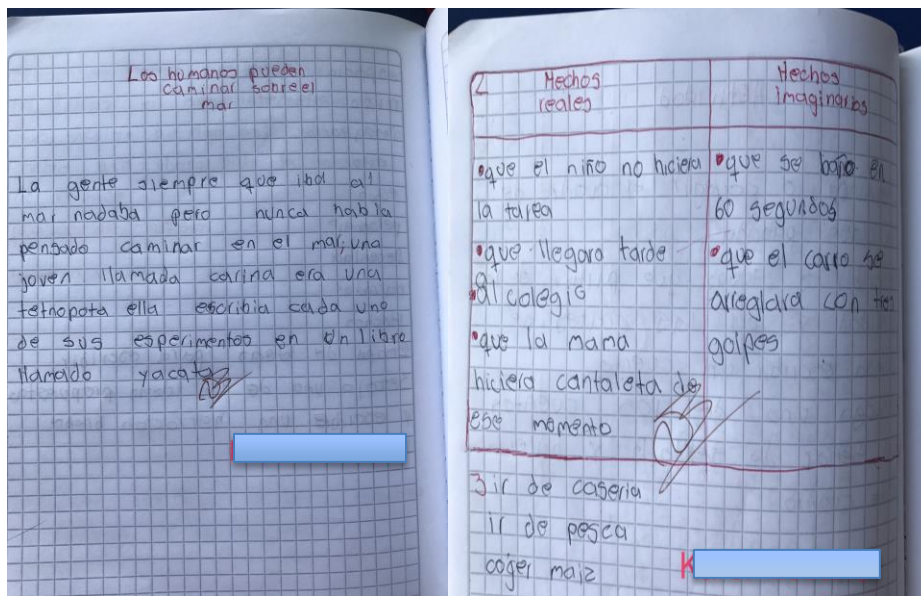 Los humanos pueden
caminar sobre el
mar
La gente siempre que iba al
mar nadaba pero nunca habia
pensado caminar en el mar; una
joven llamada carina era una
ella escribia cada uno
de sus esperimentos en un libro
llamado
2 Hechos
reales
•que el niño no hiciera
la tarea
•que llegara tarde
al colegio
•que la mama
hiciera cantaleta de
ese momento
Hechos
imaginarios
•que se baño en
60 segundos
•que el carro se
arreglara con tres
golpes
3 ir de caseria
ir de pesca
coger maiz
K